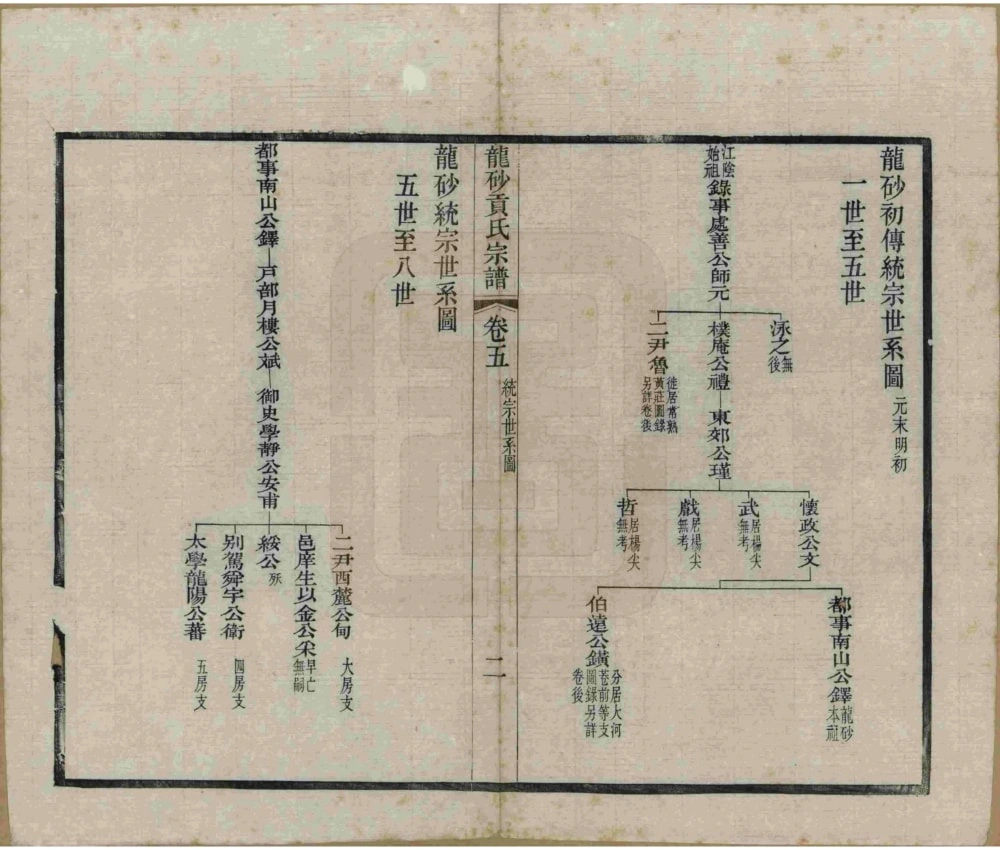 龍砂初傳統宗世系圖 元末明初
一世至五世
江陰始祖 錄事處善公師元
泳之 無後
樸庵公禮
東郊公瑾
二尹魯 徙居常熟黃莊圖錄另詳卷後
懷政公文
武 居楊尖無考
戲 居楊尖無考
哲 居楊尖無考
都事南山公鐸 龍砂本祖
伯遠公鐄 分居大河
巷前等支圖錄另詳卷後
龍砂貢氏宗譜 卷五 統宗世系圖 二
龍砂統宗世系圖
五世至八世
都事南山公鐸
戶部月樓公斌
御史學靜公安甫
二尹西麓公甸 大房支
邑庠生以金公采 早亡無嗣
綏公 殀
別駕舜宇公衛 四房支
太學龍陽公蕃 五房支